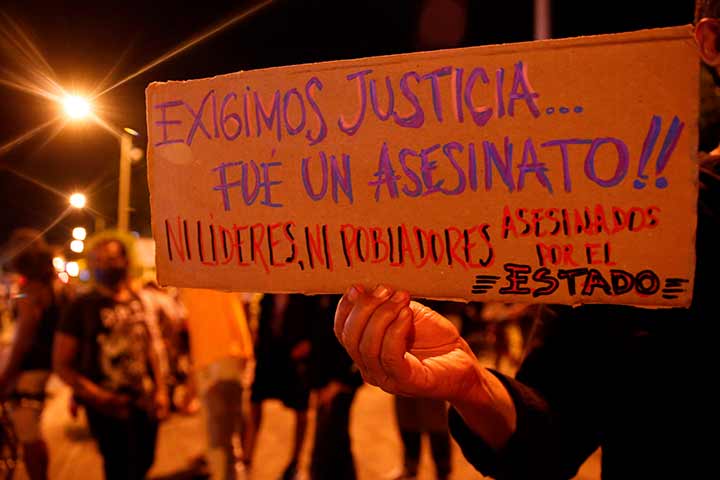 EXIGIMOS JUSTICIA...
FUÉ UN ASESINATO!!
NI LÍDERES, NI POBLADORES ASESINADOS
POR EL
ESTADO